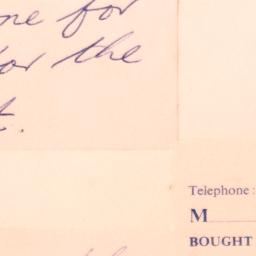 for
for the
Telephone:
M
BOUGHT